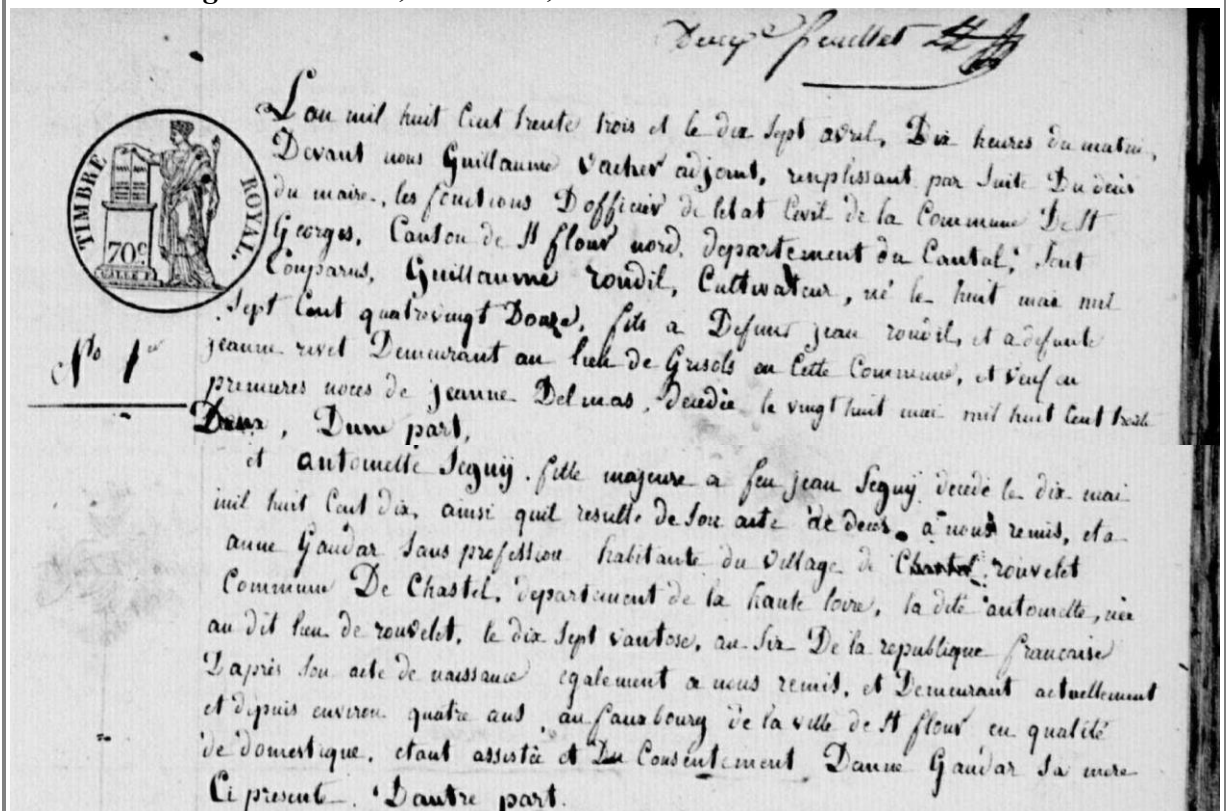 Deuxe feuillet
TIMBRE ROYAL.
70c
L'an mil huit Cent trente trois et le dix Sept avril, Dix heures du matin,
Devant nous Guillaume Vacher adjoint, remplissant par Suite Du deces
du maire, les fonctions D'officier de letat Civil de la Commune De St
Georges, Canton de St flour nord, departement du Cantal, Sont
Comparus, Guillaume roudil, Cultivateur, né le huit mai mil
Sept Cent quatrevingt Douze, fils a Defunt jean roudil, et a defunte
jeanne rivet Demeurant au lieu de Grisols en Cette Commune, et veuf en
No 1er
premieres noces de jeanne Delmas, decedée le vingt huit mai mil huit Cent trente
Deux, Dune part,
et antoinette Seguÿ, fille majeure a feu jean Seguÿ decedé le dix mai
mil huit Cent dix, ainsi quil resulte de Son acte de deces a nous remis, et a
anne Gaudar Sans profession habitante du village de rouvelet
Commune De Chastel, departement de la haute loire, la dite antoinette, née
au dit lieu de rouvelet, le dix Sept vantose, an Six De la republique francaise
D'après Son acte de naissance egalement a nous remis, et Demeurant actuellement
et depuis environ quatre ans au fauxbourg de la ville de St flour en qualité
de domestique, etant assistée et Du Consentement Danne Gaudar Sa mere
Ci presente. Dautre part.